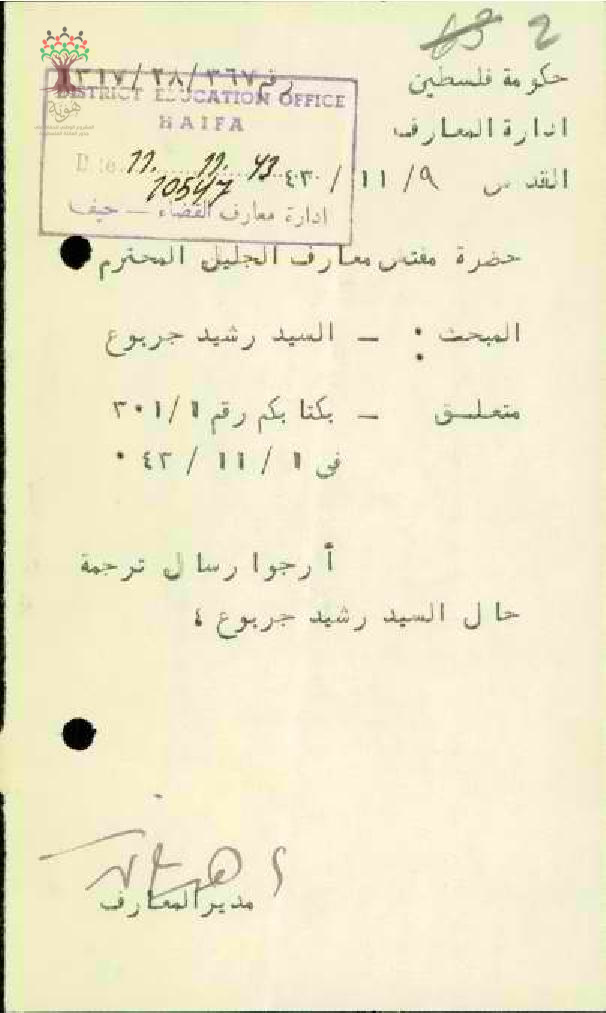 2
حكومة فلسطين
رقم ٣٦٧/٢٨/٣١٧
ادارة المعارف
القدس ٩/ ١١ / ٤٣٠
DISTRICT EDUCATION OFFICE
HAIFA
Date. 11. 11. 43
10547
ادارة معارف القضاء — حيفا
حضرة مفتش معارف الجليل المحترم
المبحث : — السيد رشيد جربوع
متعلق — بكتابكم رقم ٣٠١/١
في ١ / ١١ / ٤٣ ٠
أرجوا رسال ترجمة
حال السيد رشيد جربوع ؛
مدير المعارف
هوية